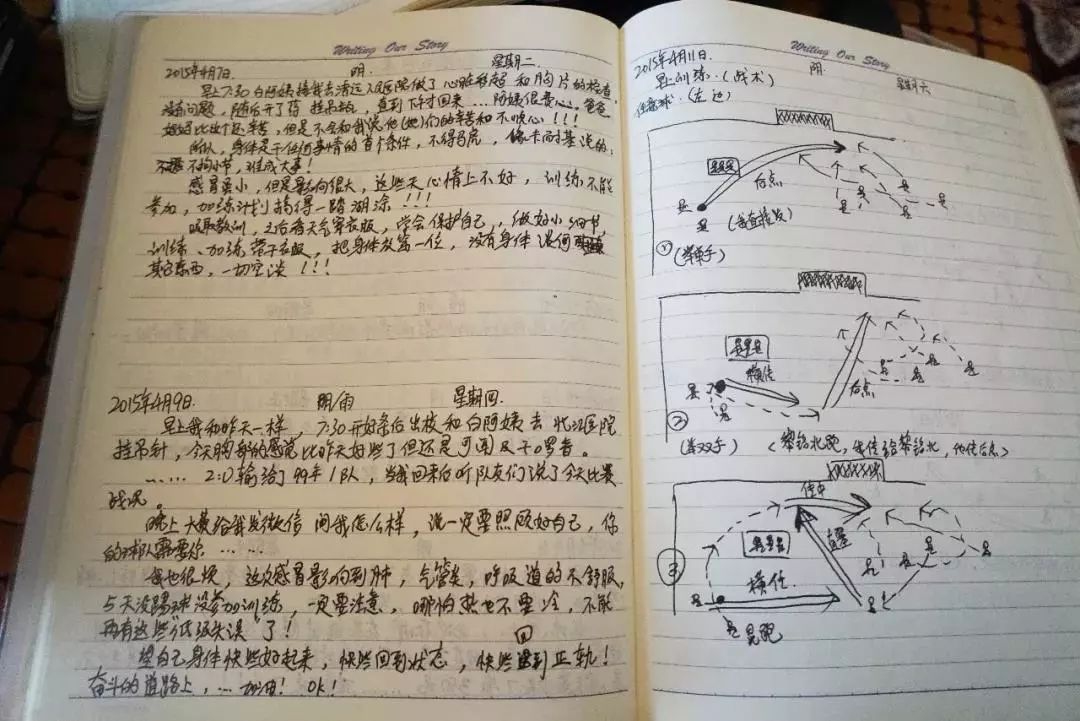 Writing Our Story
2015年4月7日. 阴. 星期二.
早上7:30白阿姨接我去清远人民医院做了心脏 和胸片的检查,
没有问题, 随后开了药 挂吊瓶, 直到下午才回来 ... 阿姨很费心, 爸爸
妈妈比这个还辛苦, 但是不会和我说他(她)们的辛苦和不顺心!!!
所以, 身体是干任何事情的首个条件, 不得马虎, 像卡耐基说的:
不拘小节, 难成大事!
感冒虽小, 但是影响很大, 这些天心情上不好, 训练不能
参加, 加练计划搞得一踏湖涂!!!
吸取教训, 之后看天气穿衣服, 学会保护自己, 做好小细节,
训练、加练带干衣服, 把身体放第一位, 没有身体谈何
其它东西, 一切空谈!!!
2015年4月9日. 阴雨 星期四.
早上我和昨天一样, 7:30开好条后出校和白阿姨去北江医院
挂吊针, 今天胸部的感觉比昨天好些了但还是可闻及干啰音。
...... 2:0输给了99年1队, 当我回来后听队友们说了今天比赛
战况。
晚上大黄给我发微信问我怎么样, 说一定要照顾好自己, 你
的球队需要你 ... ...
我也很烦, 这次感冒影响到肺, 气管炎, 呼吸道的不舒服,
5天没踢球没参加训练, 一定要注意, 哪怕热也不要冷, 不能
再有这些"低级失误"了!
望自己身体快些好起来, 快些回到状态, 快些回到正轨!
奋斗的道路上, ... 加油! OK!
Writing Our Story
2015年4月11日. 阴. 星期六
早上训练.(战术)
任意球.(左边)
后点
(我直接发)
① (举单手)
横传
后点
②
(举双手) (黎铭北跑, 我传给黎铭北, 他传后点)
传中
③
横传